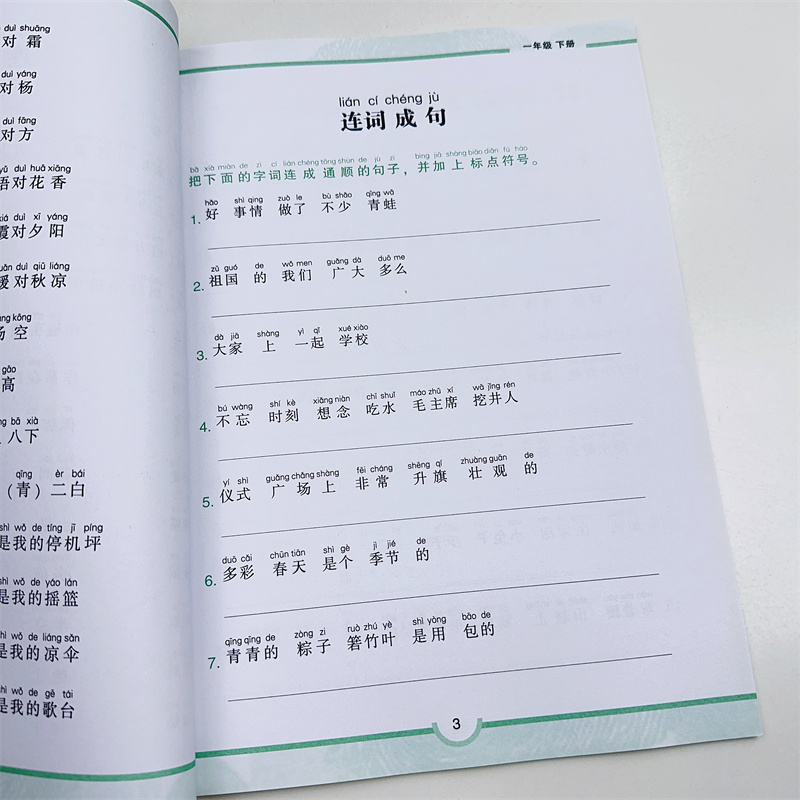 duì shuāng
对 霜
duì yáng
对杨
duì fāng
对方
duì huā xiāng
语对花 香
xiá duì xī yáng
霞对夕 阳
nuǎn duì qiū liáng
暖对秋凉
kōng
场 空
gāo
高
bā xià
八下
qīng èr bái
（青）二白
shì wǒ de tíng jī píng
是我的停机坪
shì wǒ de yáo lán
是我的摇篮
shì wǒ de liáng sǎn
是我的凉伞
shì wǒ de gē tái
是我的歌台
一年级 下册
lián cí chéng jù
连词成句
bǎ xià miàn de zì cí lián chéng tōng shùn de jù zi bìng jiā shàng biāo diǎn fú hào
把下面的字词连成通顺的句子，并加上标点符号。
hǎo shì qing zuò le bù shǎo qīng wā
1. 好 事情 做了 不少 青蛙
zǔ guó de wǒ men guǎng dà duō me
2. 祖国 的 我们 广大 多么
dà jiā shàng yì qǐ xué xiào
3. 大家 上 一起 学校
bú wàng shí kè xiǎng niàn chī shuǐ máo zhǔ xí wā jǐng rén
4. 不忘 时刻 想念 吃水 毛主席 挖井人
yí shì guǎng chǎng shàng fēi cháng shēng qí zhuàng guān de
5. 仪式 广场上 非常 升旗 壮观 的
duō cǎi chūn tiān shì gè jì jié de
6. 多彩 春天 是个 季节 的
qīng qīng de zòng zi ruò zhú yè shì yòng bāo de
7. 青青的 粽子 箬竹叶 是用 包的
3